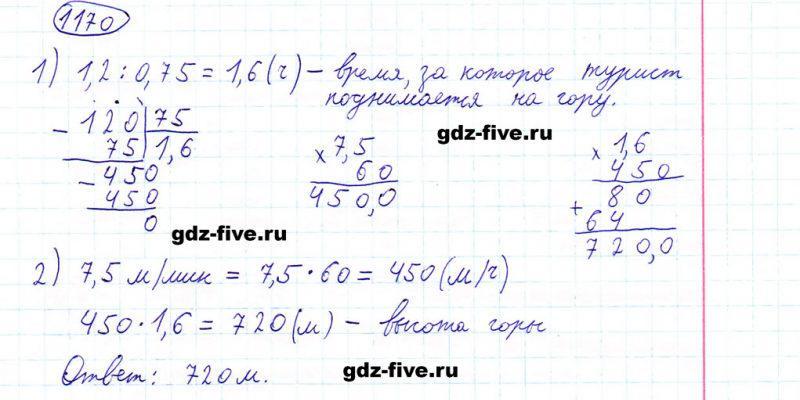 1170
1) 1,2 : 0,75 = 1,6 (ч) – время, за которое турист
поднимается на гору.
– 120 | 75
75 | 1,6
– 450
450
0
× 7,5
60
450,0
gdz-five.ru
× 1,6
450
80
+ 64
720,0
gdz-five.ru
2) 7,5 м/мин = 7,5 · 60 = 450 (м/ч)
450 · 1,6 = 720 (м) – высота горы
Ответ: 720 м.
gdz-five.ru